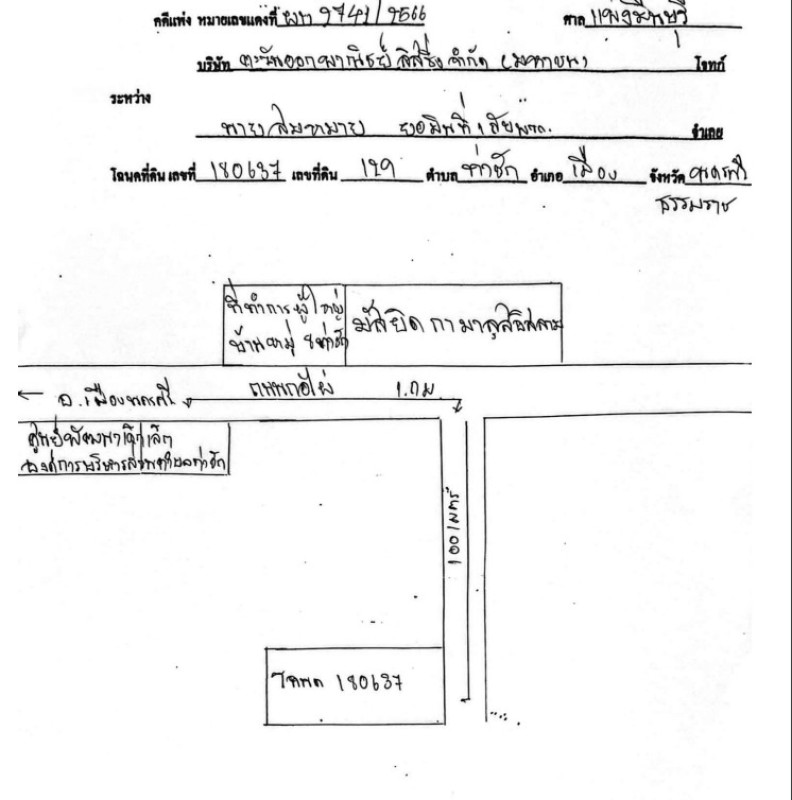 คดีแพ่ง หมายเลขแดงที่ ผบ 9741/2566 ศาล แพ่งมีนบุรี
บริษัท ตะวันออกพาณิชย์ลีสซิ่ง จำกัด (มหาชน) โจทก์
ระหว่าง
นาย จำเลย
โฉนดที่ดิน เลขที่ 180637 เลขที่ดิน 129 ตำบล ท่าซัก อำเภอ เมือง จังหวัด นครศรี
ธรรมราช
ที่ทำการผู้ใหญ่ มัสยิด
บ้านหมู่ 8 ท่าซัก
← อ.เมืองนครศรี ถนน 1 กม
ศูนย์พัฒนาเด็กเล็ก
องค์การบริหารส่วนตำบลท่าซัก
100 เมตร
โฉนด 180637